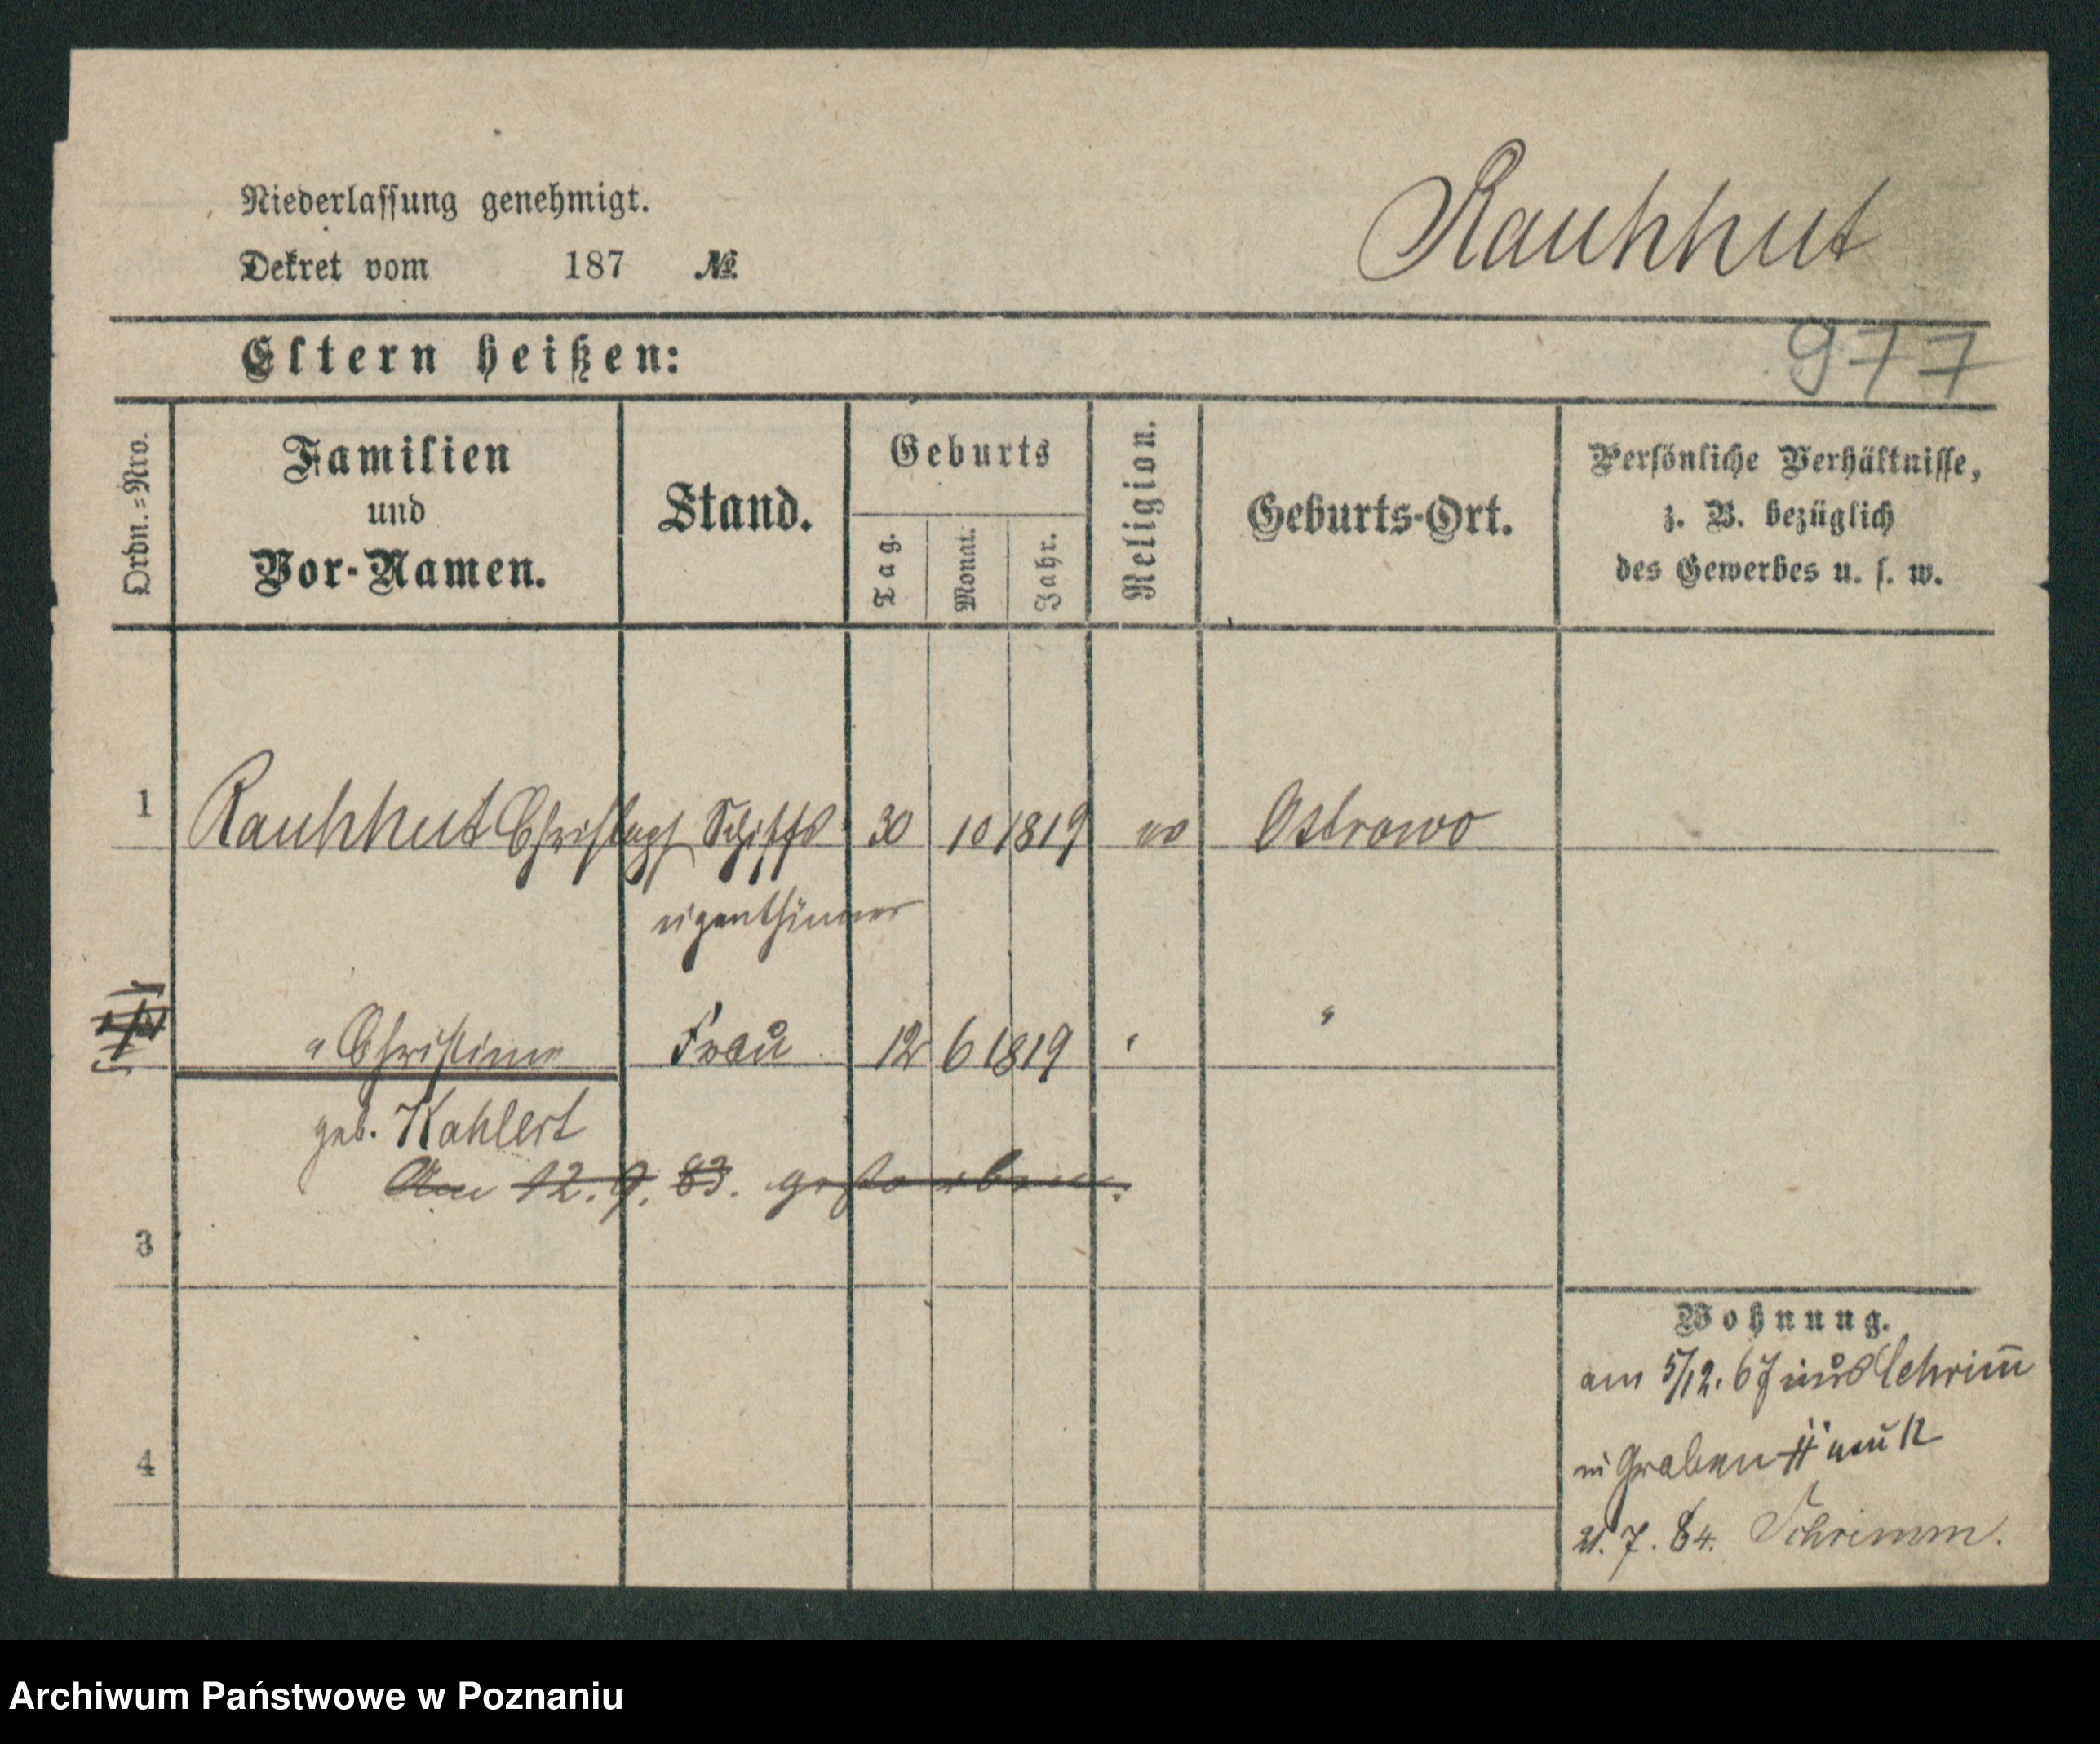 Niederlassung genehmigt.
Dekret vom 187 №
Rauhhut
Eltern heißen:
977
Ordn.=Nro.
Familien
und
Vor-Namen.
Stand.
Geburts
Tag.
Monat.
Jahr.
Religion.
Geburts-Ort.
Persönliche Verhältnisse,
z. B. bezüglich
des Gewerbes u. s. w.
1 Rauhhut Christoph Schiffs 30 10 1819 ev Ostrowo
eigenthümer
" Christine Frau 12 6 1819 " "
geb. Kahlert
Am 12. 9. 83. gestorben.
3
Wohnung.
am 5/12. 67 aus Schrim̅
4
in Graben
21. 7. 84. Schrimm.
Archiwum Państwowe w Poznaniu